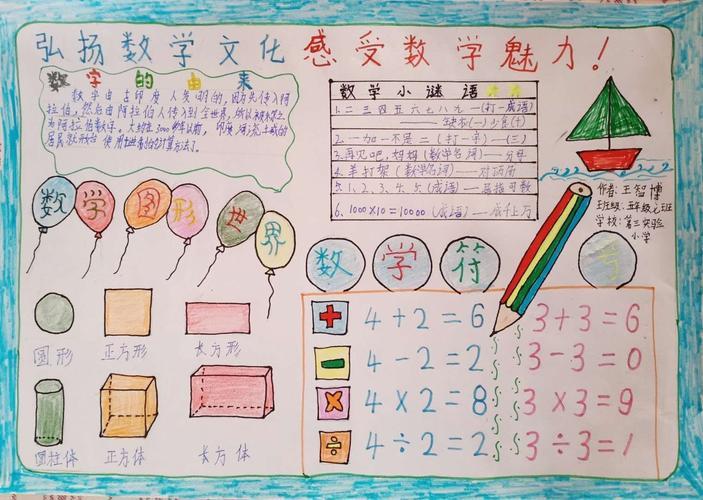 弘扬数学文化 感受数学魅力！
数字的由来
数字由古印度人发明的，因为先传入阿
拉伯，然后由阿拉伯人传入到全世界，所以被
为阿拉伯数字。大约在3000多年以前，
居民就开始 使用
数学小谜语
1.二三四五六七八九—(打一成语)
—缺衣(一)少食(十)
2.一加一不是二(打一字)—(三)
3.再见吧，妈妈(数学名词)—分母
4.羊打架(数学名词)—对顶角
5.1、2、3、4、5(成语)—屈指可数
6.1000×10=10000(成语)—成千上万
作者：王智博
班级：五年级七班
学校：第三实验
小学
数学图形世界
数学符号
圆形 正方形 长方形
圆柱体 正方体 长方体
+ 4+2=6 3+3=6
- 4-2=2 3-3=0
× 4×2=8 3×3=9
÷ 4÷2=2 3÷3=1